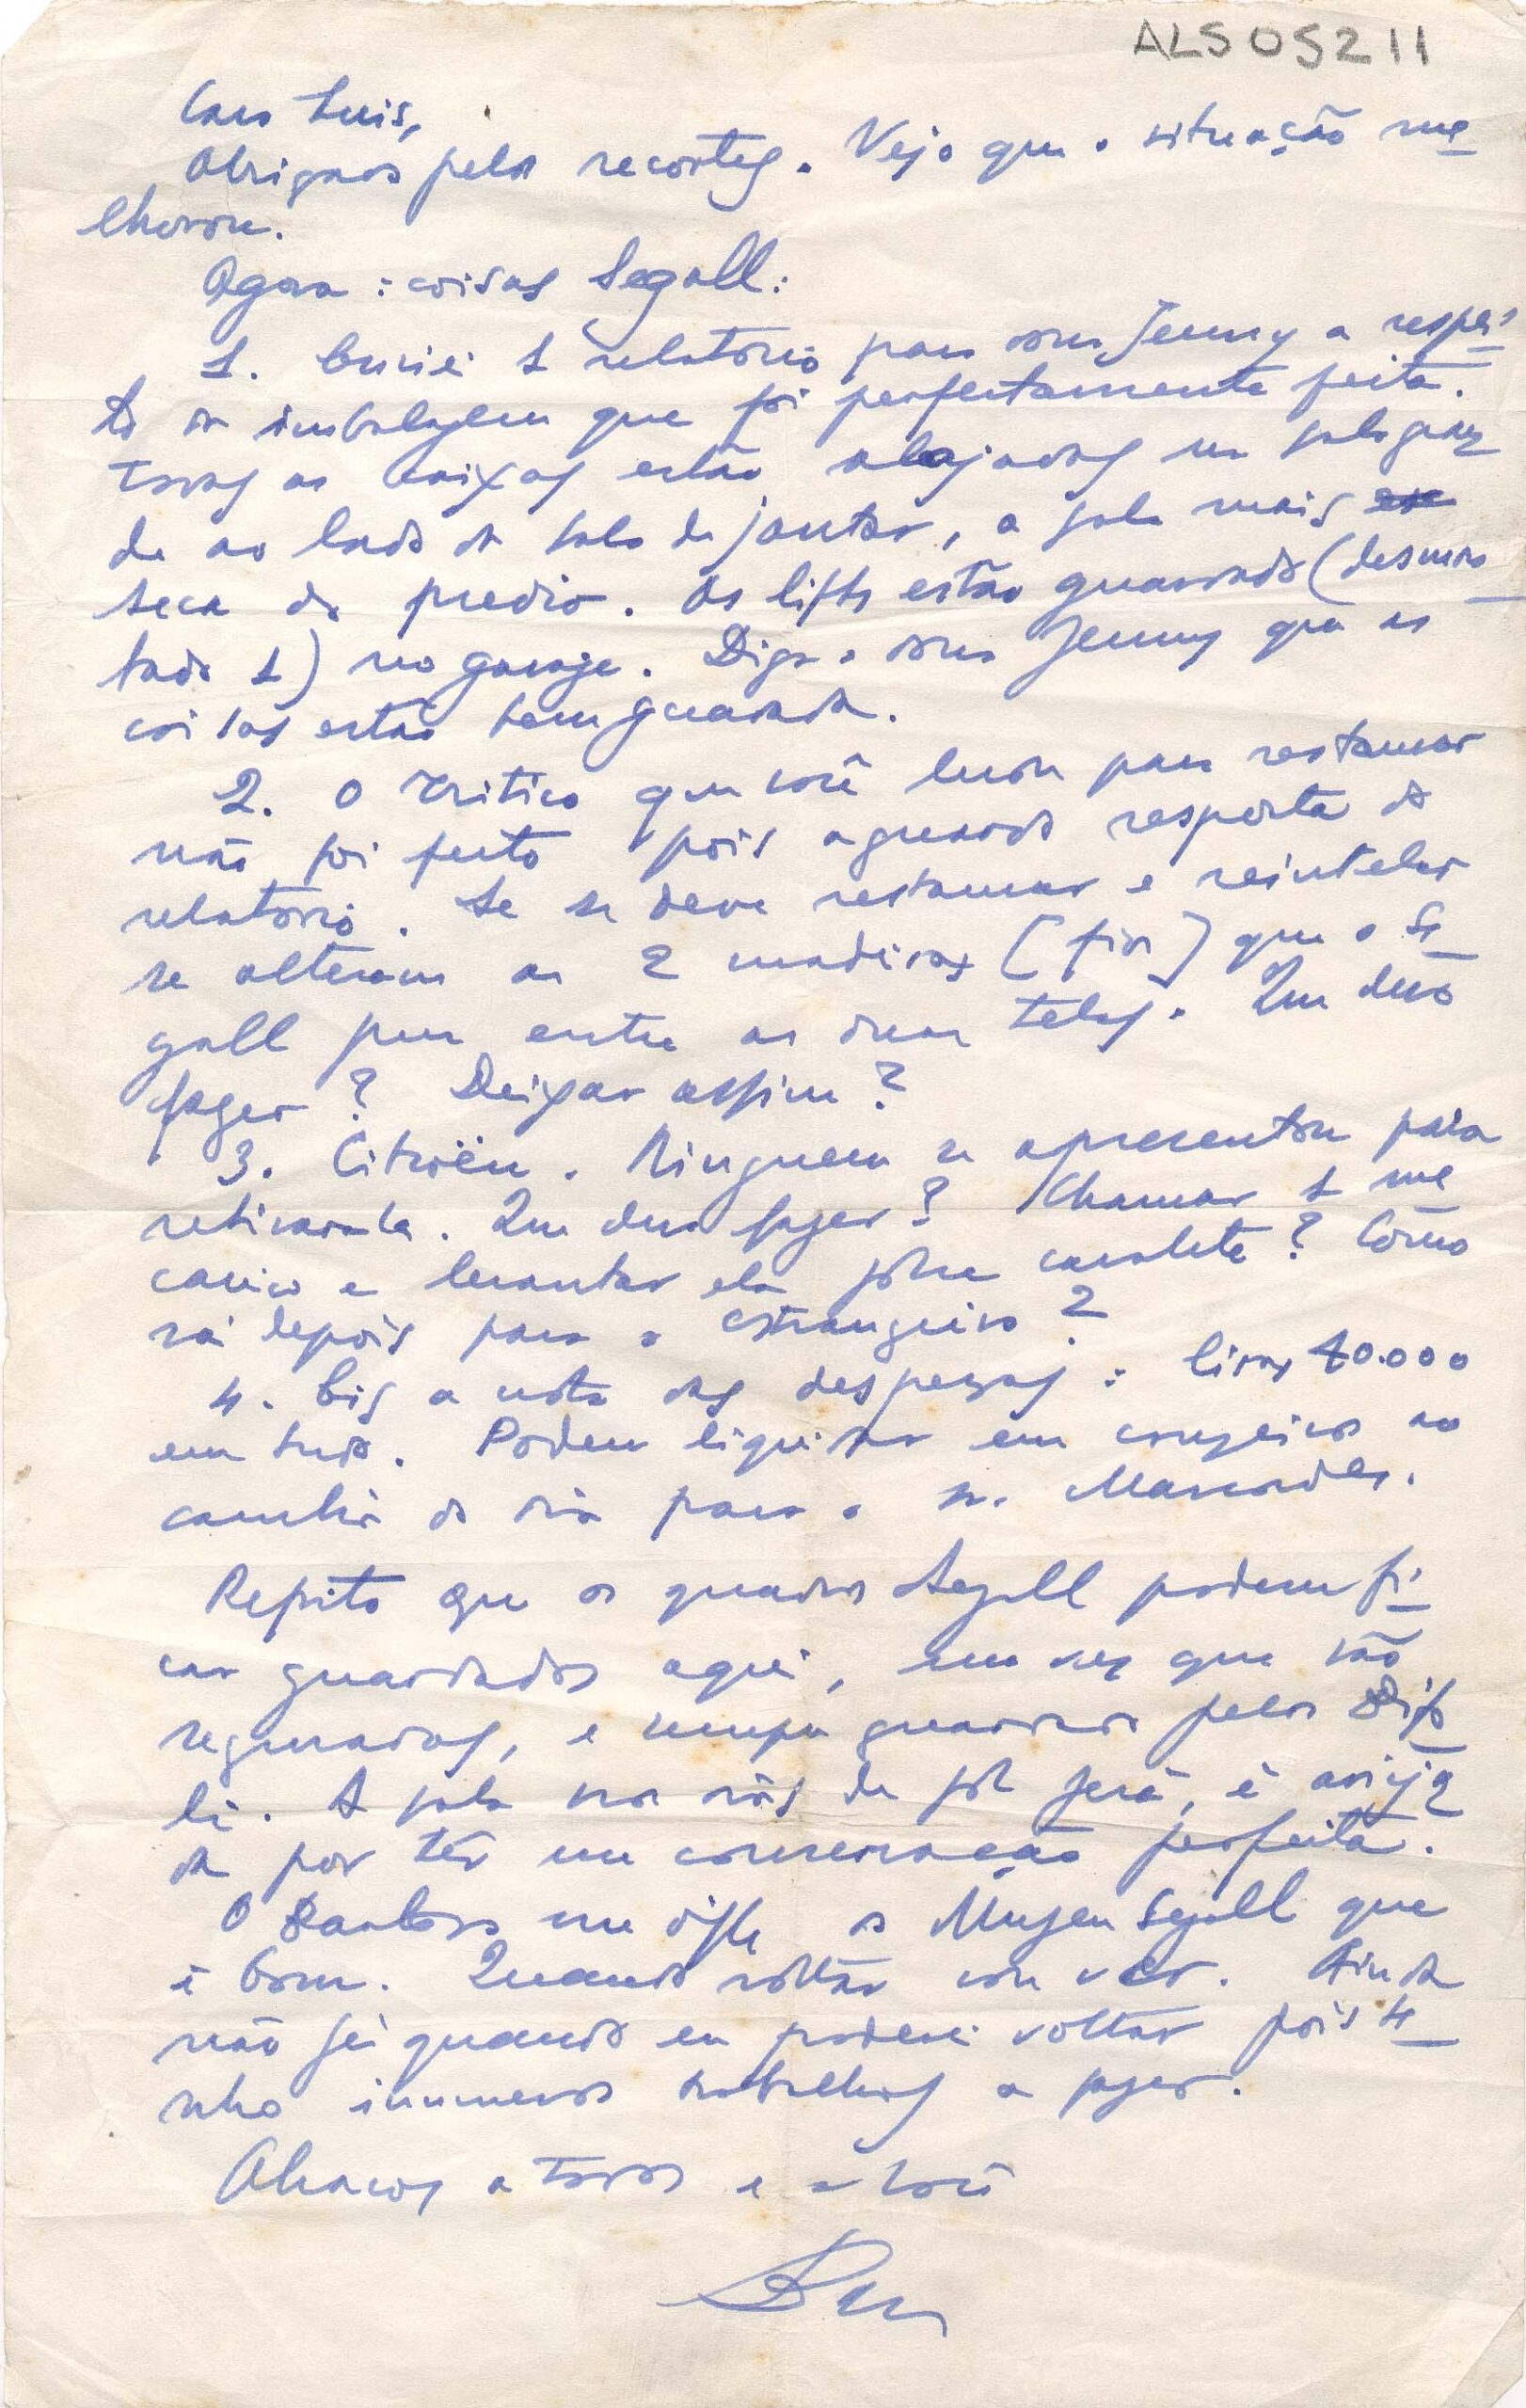 ALS 05211
Caro Luis,
Obrigado pelos recortes. Vejo que a situação me
lhorou.
Agora: coisas Segall:
1. Enviei 1 relatorio para dona Jenny a respei
to da imbalagem que foi perfeitamente feita.
Todas as caixas estão alojadas na sala gran
de ao lado da sala de jantar, a sala mais
seca do predio. Os lifts estão guardados (desmon
tado 1) no garage. Diga a dona Jenny que as
coisas estão bem guardadas.
2. O que você levou para restaurar
não foi feito pois aguardo resposta do
relatorio. Se se deve restaurar e reintelar
se alteram as 2 madeiras que o Se
gall pus entre as duas telas. Que devo
fazer? Deixar assim?
3. Citroën. Ninguem se apresentou para
retirarla. Que devo fazer? Chamar 1 me
canico e levantar ela sobre cavalete? Como
vá depois para o estrangeiro?
4. Eis a nota das despezas: liras 40.000
em tudo. Podem liquidar em cruzeiros ao
cambio do dia para o sr. Marcondes.
Repito que os quadros Segall podem fi
car guardados aqui, uma vez que são
segurados, e sempre guardados pelos
A sala nos dias de sol será
da por ter uma conservação perfeita.
O me disse o Museu Segall que
é bom. Quando voltar vou ver. Ainda
não sei quando eu poderei voltar pois te
nho inumeros trabalhos a fazer.
Abraços a todos e a você